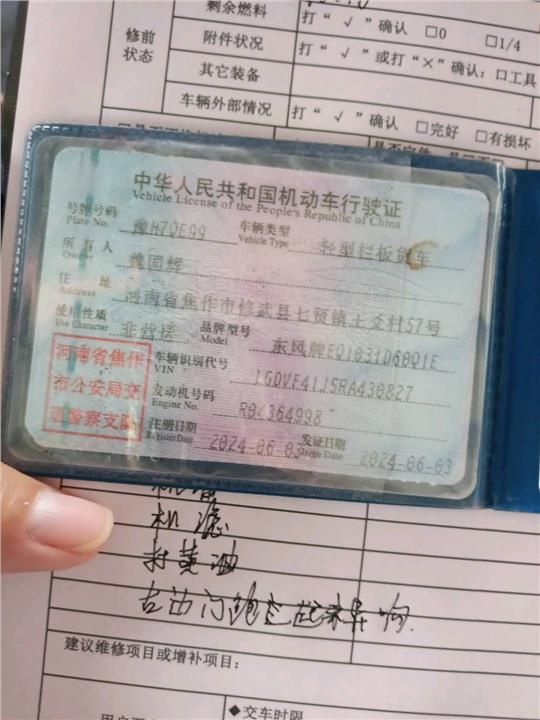 剩余燃料
打“√”确认 □0 □1/4
修前状态
附件状况
打“√”或打“×”确认：口工具
其它装备
车辆外部情况
打“√”确认 □完好 □有损坏
中华人民共和国机动车行驶证
Vehicle License of the People's Republic of China
号牌号码 豫H7QE99 车辆类型 轻型栏板货车
Plate No. Vehicle Type
所有人 魏国辉
Owner
住址 河南省焦作市修武县七贤镇土交村57号
Address
使用性质 非营运 品牌型号 东风牌EQ1031D60Q1E
Use Character Model
河南省焦作市公安局交通警察支队
车辆识别代号 LGDVF41J5RA430827
VIN
发动机号码 R04364998
Engine No.
注册日期 2024-06-03 发证日期 2024-06-03
Register Date Issue Date
机滤
打黄油
建议维修项目或增补项目：
◆交车时限